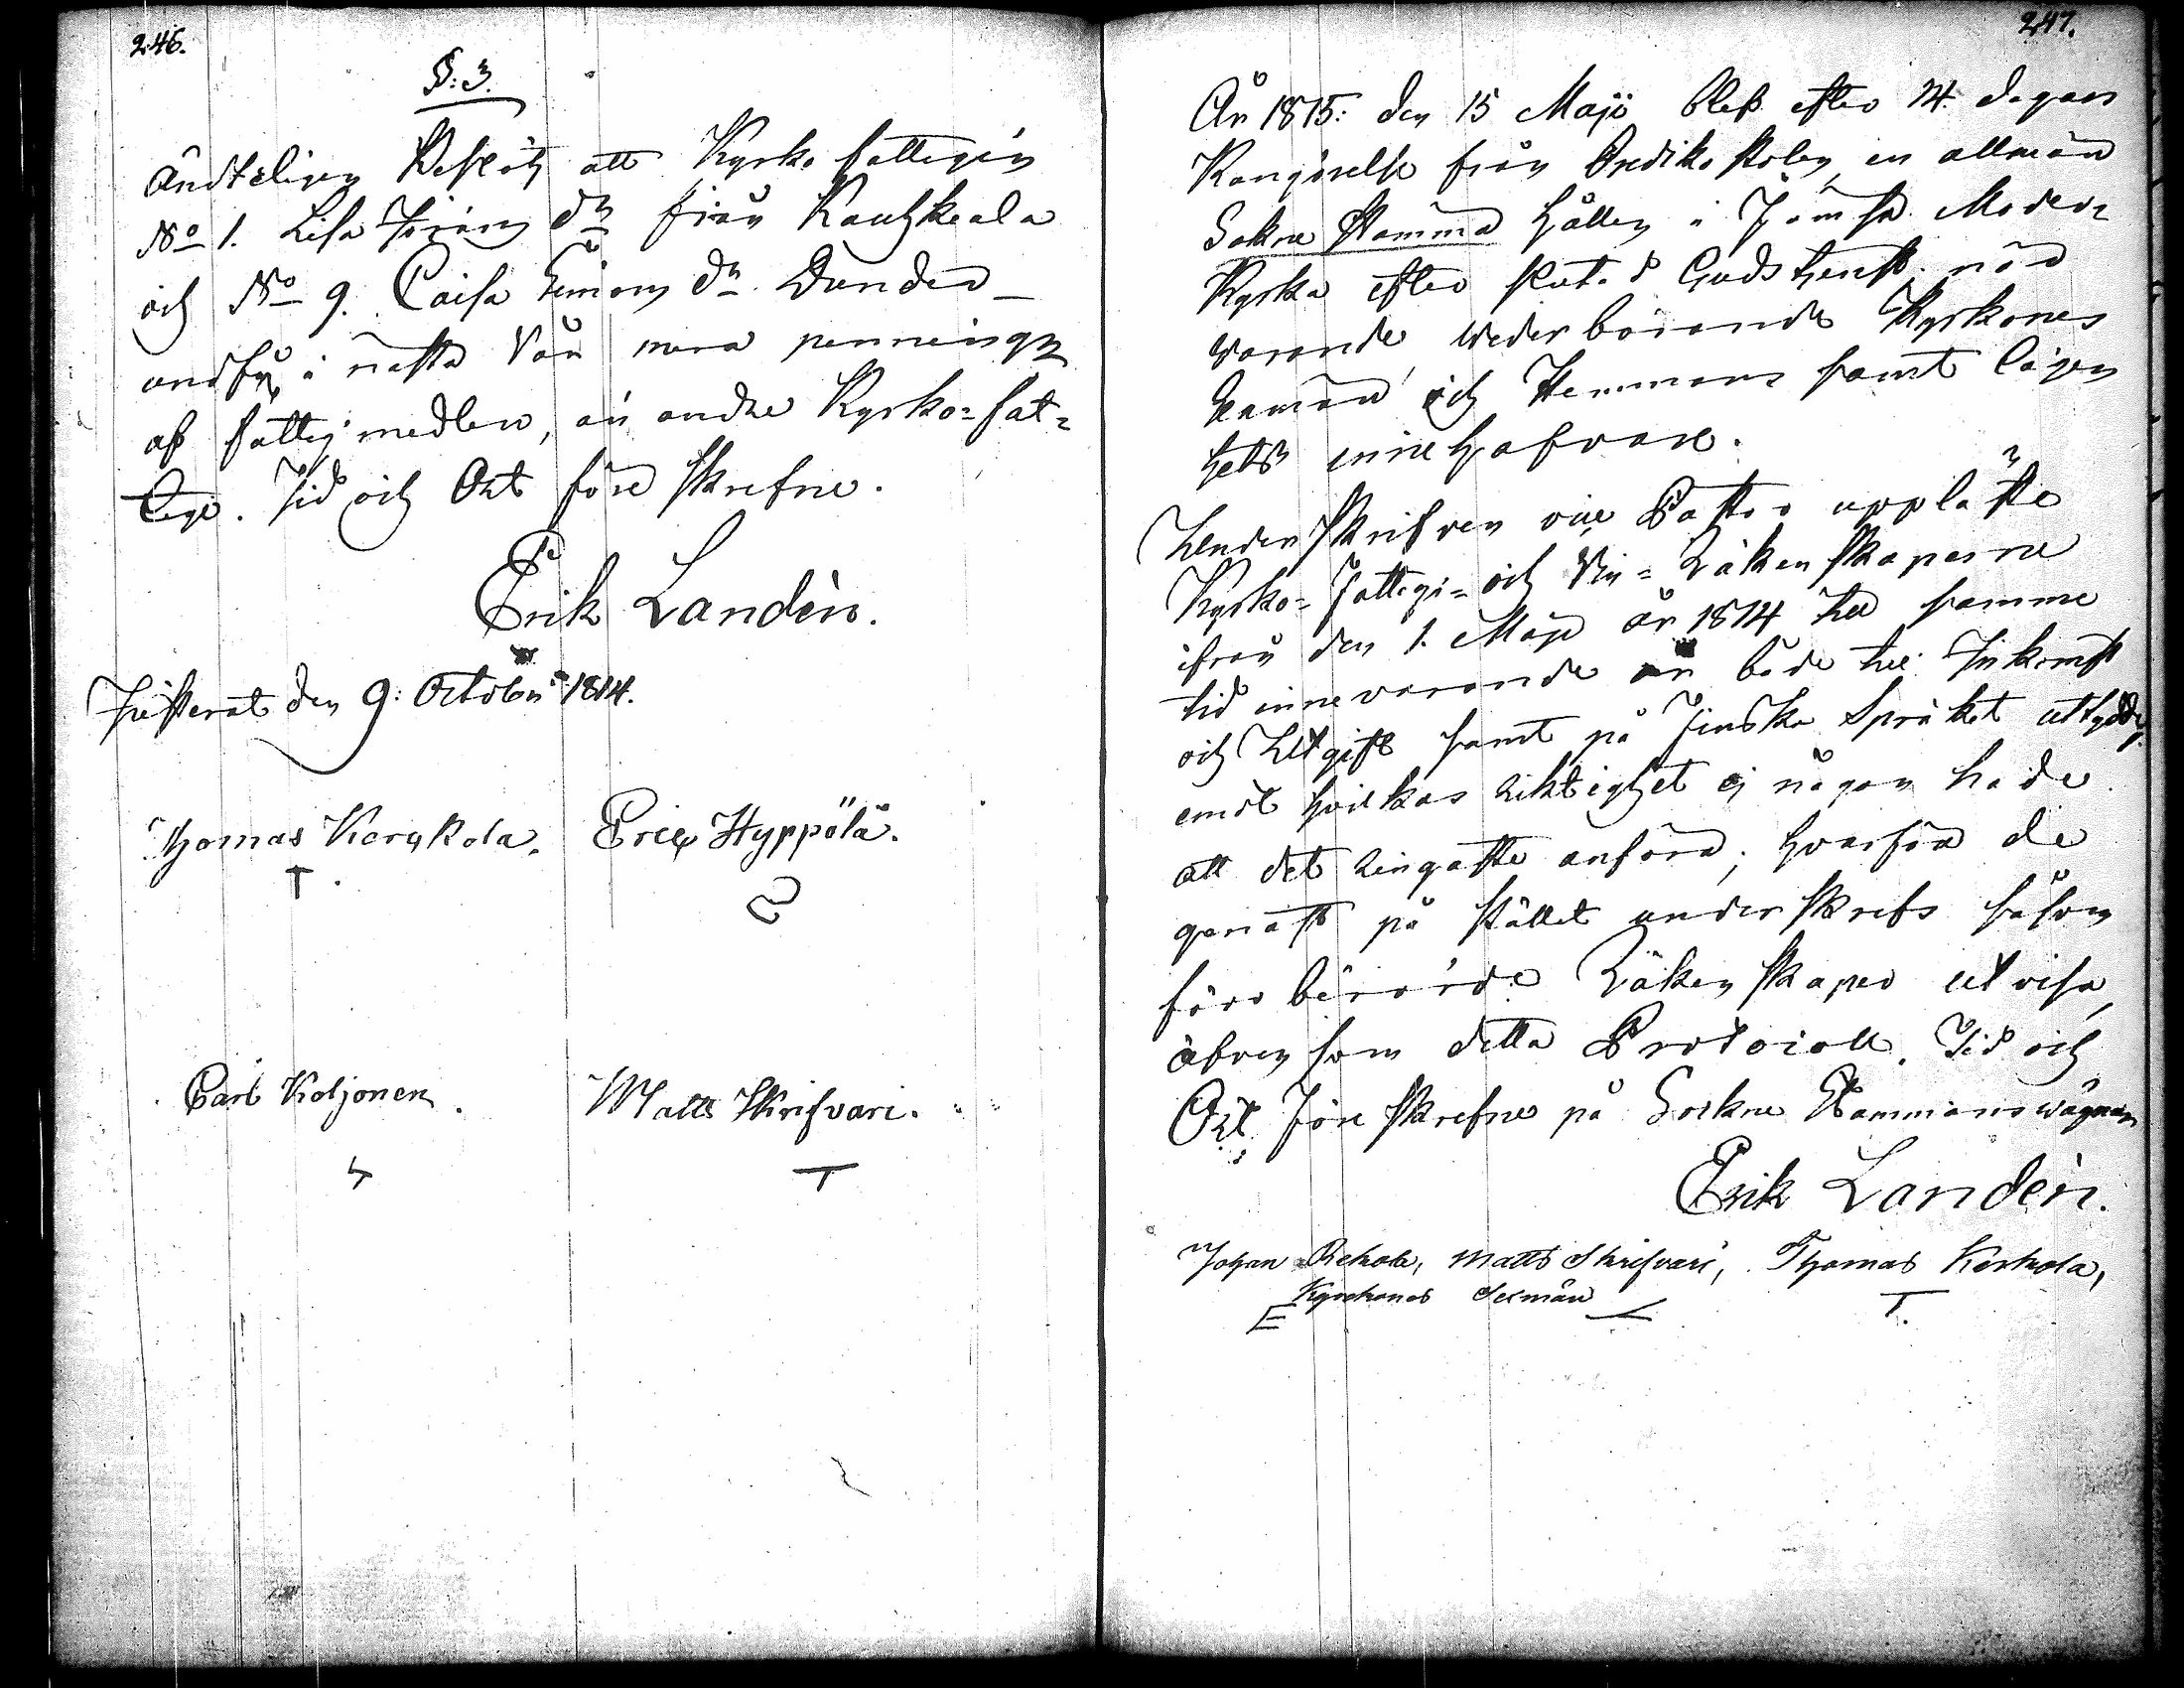 246.
§: 3.
Ändteligen Beslöts att Kyrko fattigen
No 1. Lisa Göransdr från Kautzkeala
och No 9. Caisa Simonsdr. Dunder
undfå i nästa Vår mera penningar
af fattig medlen, än andre Kyrko=fat=
tige. Tid och Ort före skrefne.
Erik Landén.
Justerat den 9: October 1814.
Thomas Kerkkola. Eric Hyppölä.
T
Carl Koljonen. Matts Skrifvari.
247.
År 1815: den 15 Maji blef efter 14 dagars
Kungörelse från Predikostolen, en allmän
Sokne Stämma hållen i Jämsä Moder=
Kyrka efter slutad Gudstjenst när
warande wederbörande Kyrkones
Sexmän och Hemmans samt lägen
hets innehafvare.
Underskrifven vice Pastor uppläste
Kyrko= Fattige= och Vin= Räkenskaperne
ifrån den 1. Maji år 1814 till samme
tid innevarande år både till Inkomst
och Utgift samt på Finska Språket uttydde,
emot hvilkas riktighet ej någon hade
att det ringaste anföra; hvarföre de
genast på stället underskrefs såsom
förr berörde Räkenskaper utvisa,
äfven som detta Protocoll. Tid och
Ort före skrefne på Sockne Stämmans wägnar
Erik Landén.
Johan Rekola, Matts Skrifvari, Thomas Kerkola,
Kyrckones Sexmän
E T.